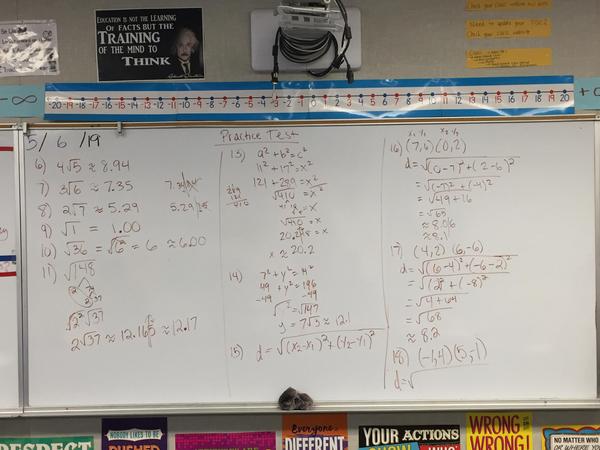 EDUCATION IS NOT THE LEARNING
OF FACTS BUT THE
TRAINING
OF THE MIND TO
THINK
-∞
-20 -19 -18 -17 -16 -15 -14 -13 -12 -11 -10 -9 -8 -7 -6 -5 -4 -3 -2 -1 0 1 2 3 4 5 6 7 8 9 10 11 12 13 14 15 16 17 18 19 20
5/6/19
Practice Test
6) 4√5 ≈ 8.94
7) 3√6 ≈ 7.35
8) 2√7 ≈ 5.29
5.29
9) √1 = 1.00
10) √36 = √6² = 6 ≈ 6.00
11) √148
2√37
√2² √37
2√37 ≈ 12.165 ≈ 12.17
13) a² + b² = c²
11² + 17² = x²
121 + 289 = x²
√410 = √x²
289
121
410
√410 = x
20.248 = x
x ≈ 20.2
14) 7² + y² = 14²
49 + y² = 196
-49 -49
√y² = √147
y = 7√3 ≈ 12.1
15) d = √(x₂-x₁)² + (y₂-y₁)²
x₁ y₁ x₂ y₂
16) (7,6) (0,2)
d = √(0-7)² + (2-6)²
= √(-7)² + (-4)²
= √49 + 16
= √65
≈ 8.06
≈ 8.1
17) (4,2) (6,-6)
d = √(6-4)² + (-6-2)²
= √(2)² + (-8)²
= √4 + 64
= √68
≈ 8.2
18) (-1,4) (5,-1)
d = √
RESPECT
NOBODY LIKES TO BE
Everyone
DIFFERENT
YOUR ACTIONS
WRONG
WRONG!
NO MATTER WHO